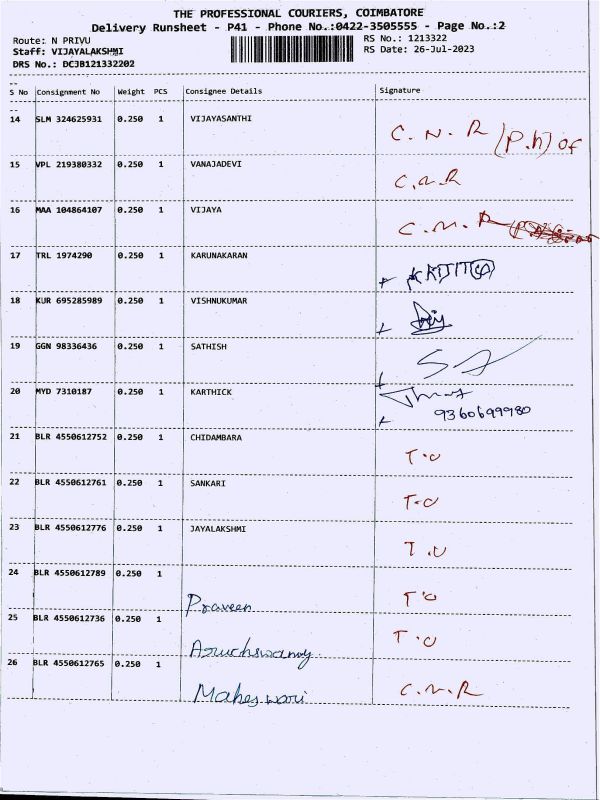 THE PROFESSIONAL COURIERS, COIMBATORE
Delivery Runsheet - P41 - Phone No.:0422-3505555 - Page No.:2
Route: N PRIVU RS No.: 1213322
Staff: VIJAYALAKSHMI RS Date: 26-Jul-2023
DRS No.: DCJB121332202
S No Consignment No Weight PCS Consignee Details Signature
14 SLM 324625931 0.250 1 VIJAYASANTHI C. N. R (P.h) of
15 VPL 219380332 0.250 1 VANAJADEVI C.N.R
16 MAA 104864107 0.250 1 VIJAYA C.N.R
17 TRL 1974290 0.250 1 KARUNAKARAN
18 KUR 695285989 0.250 1 VISHNUKUMAR
19 GGN 98336436 0.250 1 SATHISH
20 MYD 7310187 0.250 1 KARTHICK
9360699980
21 BLR 4550612752 0.250 1 CHIDAMBARA T.O
22 BLR 4550612761 0.250 1 SANKARI T.O
23 BLR 4550612776 0.250 1 JAYALAKSHMI T.O
24 BLR 4550612789 0.250 1 Praveen T.O
25 BLR 4550612736 0.250 1 T.O
26 BLR 4550612765 0.250 1 Maheswari C.N.R